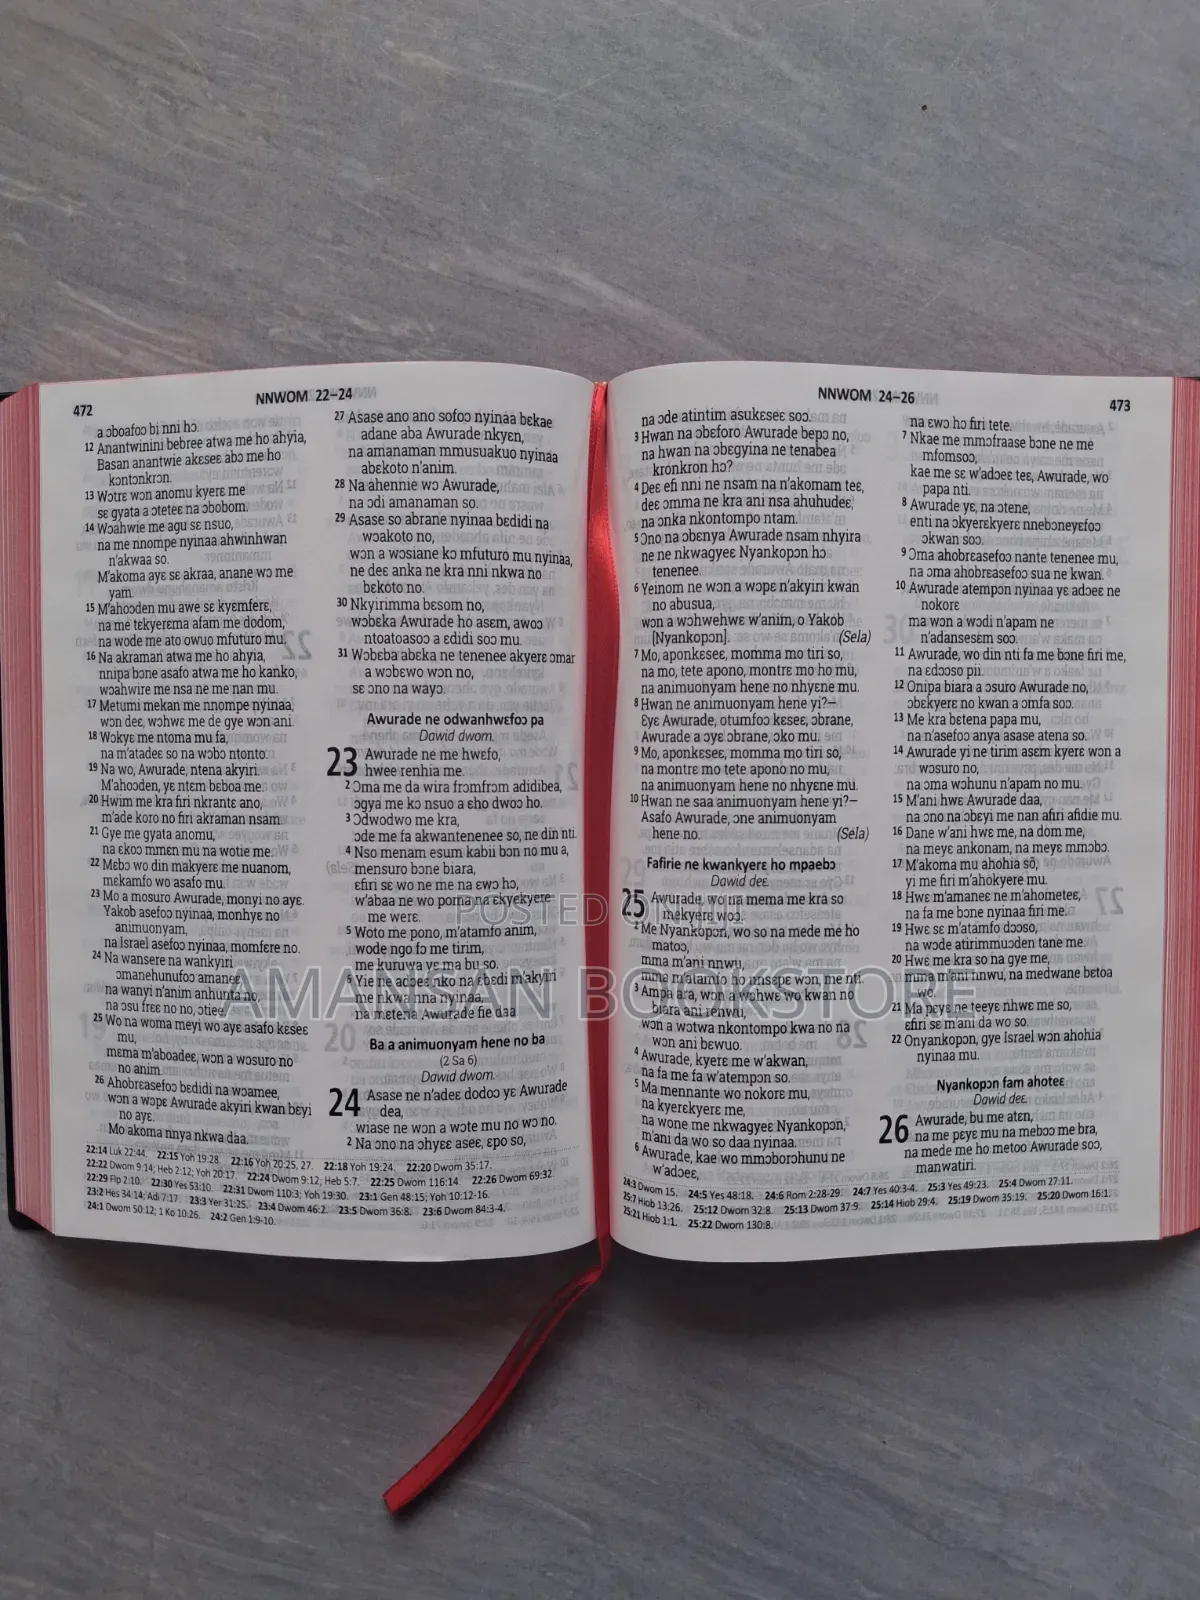 472
NNWOM 22–24
a ɔboafoɔ bi nni hɔ.
12 Anantwinini bebree atwa me ho ahyia,
Basan anantwie akɛseɛ abɔ me ho
kɔntɔnkrɔn.
13 Wɔtrɛ wɔn anomu kyerɛ me
sɛ gyata a ɔteteɛ na ɔbobom.
14 Woahwie me agu sɛ nsuo,
na me nnompe nyinaa ahwinhwan
n'akwaa so.
M'akoma ayɛ sɛ akraa, anane wɔ me
yam.
15 M'ahoɔden mu awe sɛ kyɛmferɛ,
na me tɛkyerɛma afam me dodom,
na wode me ato owuo mfuturo mu.
16 Na akraman atwa me ho ahyia,
nnipa bɔne asafo atwa me ho kanko,
woahwire me nsa ne me nan mu.
17 Metumi mekan me nnompe nyinaa,
wɔn deɛ, wɔhwɛ me de gye wɔn ani.
18 Wɔkyɛ me ntoma mu fa,
na m'atadeɛ so na wɔbɔ ntonto.
19 Na wo, Awurade, ntena akyiri.
M'ahoɔden, yɛ ntɛm bɛboa me.
20 Hwim me kra firi nkrantɛ ano,
m'ade koro no firi akraman nsam.
21 Gye me gyata anomu,
na ɛkoɔ mmɛn mu na wotie me.
22 Mɛbɔ wo din makyerɛ me nuanom,
mɛkamfo wo asafo mu.
23 Mo a mosuro Awurade, monyi no ayɛ.
Yakob asefoɔ nyinaa, monhyɛ no
animuonyam,
na Israel asefoɔ nyinaa, momfɛre no.
24 Na wansere na wankyiri
ɔmanehunufoɔ amaneɛ,
na wanyi n'anim anhunta no,
na ɔsu frɛɛ no no, ɔtieeɛ.
25 Wo na woma meyi wo ayɛ asafo kɛseɛ
mu,
mɛma m'aboadeɛ, wɔn a wɔsuro no
no anim.
26 Ahobrɛasefoɔ bɛdidi na woamee,
wɔn a wɔpɛ Awurade akyiri kwan bɛyi
no ayɛ.
Mo akoma nnya nkwa daa.
27 Asase ano ano sofoɔ nyinaa bɛkae
adane aba Awurade nkyɛn,
na amanaman mmusuakuo nyinaa
abɛkoto n'anim.
28 Na ahennie wɔ Awurade,
na ɔdi amanaman so.
29 Asase so abrane nyinaa bɛdidi na
woakoto no,
wɔn a wɔsiane kɔ mfuturo mu nyinaa,
ne deɛ anka ne kra nni nkwa no
bɛkoto no.
30 Nkyirimma bɛsom no,
wɔbɛka Awurade ho asɛm, awoɔ
ntoatoasoɔ a ɛdidi soɔ mu.
31 Wɔbɛba abɛka ne tenenee akyerɛ ɔmar
a wɔbɛwo wɔn no,
sɛ ɔno na wayɔ.
Awurade ne odwanhwɛfoɔ pa
Dawid dwom.
23 Awurade ne me hwɛfo,
hwee renhia me.
2 Ɔma me da wira frɔmfrɔm adidibea,
ɔgya me kɔ nsuo a ɛho dwoɔ ho.
3 Ɔdwodwo me kra,
ɔde me fa akwantenenee so, ne din nti.
4 Nso menam esum kabii bɔn no mu a,
mensuro bɔne biara,
ɛfiri sɛ wo ne me na ɛwɔ hɔ,
w'abaa ne wo poma na ɛkyekyerɛ
me werɛ.
5 Woto me pono, m'atamfo anim,
wode ngo fɔ me tirim,
me kuruwa yɛ ma bu so.
6 Yie ne adɔeɛ nko na ɛbɛdi m'akyiri
me nkwa nna nyinaa,
na mɛtena Awurade fie daa
Ba a animuonyam hene no ba
(2 Sa 6)
Dawid dwom.
24 Asase ne n'adeɛ dodoɔ yɛ Awurade
dea,
wiase ne wɔn a wɔte mu no wɔ no.
2 Na ɔno na ɔhyɛɛ aseɛ, ɛpo so,
22:14 Luk 22:44. 22:15 Yoh 19:28. 22:16 Yoh 20:25, 27. 22:18 Yoh 19:24. 22:20 Dwom 35:17.
22:22 Dwom 9:14; Heb 2:12; Yoh 20:17. 22:24 Dwom 9:12; Heb 5:7. 22:25 Dwom 116:14. 22:26 Dwom 69:32.
22:29 Flp 2:10. 22:30 Yes 53:10. 22:31 Dwom 110:3; Yoh 19:30. 23:1 Gen 48:15; Yoh 10:12-16.
23:2 Hes 34:14; Adi 7:17. 23:3 Yer 31:25. 23:4 Dwom 46:2. 23:5 Dwom 36:8. 23:6 Dwom 84:3-4.
24:1 Dwom 50:12; 1 Ko 10:26. 24:2 Gen 1:9-10.
NNWOM 24–26
473
na ɔde atintim asukɛseɛ soɔ.
3 Hwan na ɔbɛforo Awurade bepɔ no,
na hwan na ɔbɛgyina ne tenabea
kronkron hɔ?
4 Deɛ efi nni ne nsam na n'akomam teɛ,
deɛ ɔmma ne kra ani nsa ahuhudeɛ,
na ɔnka nkontompo ntam.
5 Ɔno na ɔbɛnya Awurade nsam nhyira
ne ne nkwagyeɛ Nyankopɔn hɔ
tenenee.
6 Yeinom ne wɔn a wɔpɛ n'akyiri kwan
no abusua,
wɔn a wɔhwehwɛ w'anim, o Yakob
[Nyankopɔn]. (Sela)
7 Mo, aponkɛseɛ, momma mo tiri so,
na mo, tete apono, montrɛ mo ho mu,
na animuonyam hene no nhyɛne mu.
8 Hwan ne animuonyam hene yi?—
Ɛyɛ Awurade, otumfoɔ kɛseɛ, ɔbrane,
Awurade a ɔyɛ ɔbrane, ɔko mu.
9 Mo, aponkɛseɛ, momma mo tiri so,
na montrɛ mo tete apono no mu,
na animuonyam hene no nhyɛne mu.
10 Hwan ne saa animuonyam hene yi?—
Asafo Awurade, ɔne animuonyam
hene no. (Sela)
Fafirie ne kwankyerɛ ho mpaebɔ
Dawid deɛ.
25 Awurade, wo na mema me kra so
mekyerɛ woɔ.
2 Me Nyankopɔn, wo so na mede me ho
matoɔ,
mma m'ani nnwu,
mma m'atamfo ho nnsɛpɛ wɔn me nti.
3 Ampa ara, wɔn a wɔhwɛ wo kwan no
biara ani renwu,
wɔn a wotwa nkontompo kwa no na
wɔn ani bɛwuo.
4 Awurade, kyerɛ me w'akwan,
na fa me fa w'atempɔn so.
5 Ma mennante wo nokorɛ mu,
na kyerɛkyerɛ me,
na wone me nkwagyeɛ Nyankopɔn,
m'ani da wo so daa nyinaa.
6 Awurade, kae wo mmɔborɔhunu ne
w'adɔeɛ,
na ɛwɔ hɔ firi tete.
7 Nkae me mmɔfraase bɔne ne me
mfomsoɔ,
kae me sɛ w'adɔeɛ teɛ, Awurade, wo
papa nti.
8 Awurade yɛ, na ɔtene,
enti na ɔkyerɛkyerɛ nnebɔneyɛfoɔ
ɔkwan soɔ.
9 Ɔma ahobrɛasefoɔ nante tenenee mu,
na ɔma ahobrɛasefoɔ sua ne kwan.
10 Awurade atempɔn nyinaa yɛ adɔeɛ ne
nokorɛ
ma wɔn a wɔdi n'apam ne
n'adansesɛm soɔ.
11 Awurade, wo din nti fa me bɔne firi me,
na ɛdɔɔso pii.
12 Onipa biara a ɔsuro Awurade no,
ɔbɛkyerɛ no kwan a ɔmfa soɔ.
13 Me kra bɛtena papa mu,
na n'asefoɔ anya asase atena so.
14 Awurade yi ne tirim asɛm kyerɛ wɔn a
wɔsuro no,
na ɔma wɔhunu n'apam no mu.
15 M'ani hwɛ Awurade daa,
na ɔno na ɔbɛyi me nan afiri afidie mu.
16 Dane w'ani hwɛ me, na dom me,
na meyɛ ankonam, na meyɛ mmɔbɔ.
17 M'akoma mu ahohia sõ,
yi me firi m'ahokyere mu.
18 Hwɛ m'amaneɛ ne m'ahometeɛ,
na fa me bɔne nyinaa firi me.
19 Hwɛ sɛ m'atamfo dɔɔso,
na wɔde atirimmuɔden tane me.
20 Hwɛ me kra so na gye me,
mma m'ani nnwu, na medwane bɛtoa
wo.
21 Ma pɛyɛ ne teeyɛ nhwɛ me so,
ɛfiri sɛ m'ani da wo so.
22 Onyankopɔn, gye Israel wɔn ahohia
nyinaa mu.
Nyankopɔn fam ahoteɛ
Dawid deɛ.
26 Awurade, bu me atɛn,
na me pɛyɛ mu na mebɔɔ me bra,
na mede me ho metoo Awurade soɔ,
manwatiri.
24:3 Dwom 15. 24:5 Yes 48:18. 24:6 Rom 2:28-29. 24:7 Yes 40:3-4. 25:3 Yes 49:23. 25:4 Dwom 27:11.
25:7 Hiob 13:26. 25:12 Dwom 32:8. 25:13 Dwom 37:9. 25:14 Hiob 29:4. 25:19 Dwom 35:19. 25:20 Dwom 16:1.
25:21 Hiob 1:1. 25:22 Dwom 130:8.
POSTED ON JIJI
AMANSAN BOOKSTORE